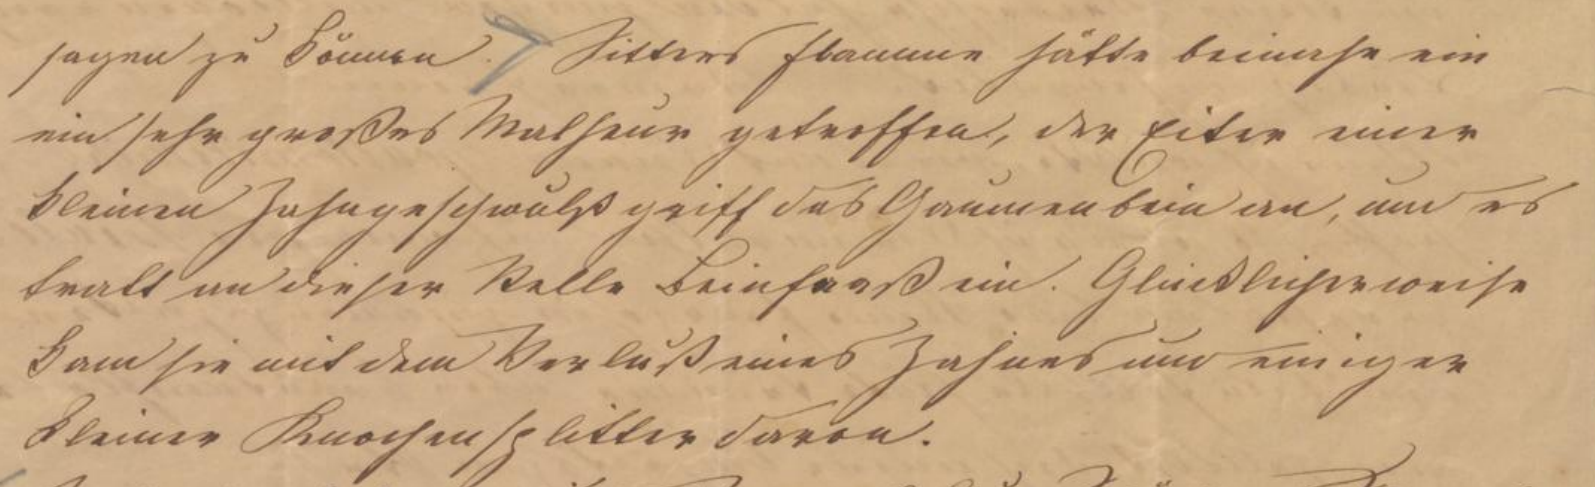 sagen zu können. Sitters Flamme hätte beinahe ein
ein sehr großes Malheur getroffen, der Eiter einer
kleinen Zahngeschwulst griff das Gaumenbein an, und es
tratt an dieser Stelle Beinfraß ein. Glücklicherweise
kam sie mit dem Verlust eines Zahnes und einiger
kleiner Knochensplitter davon.